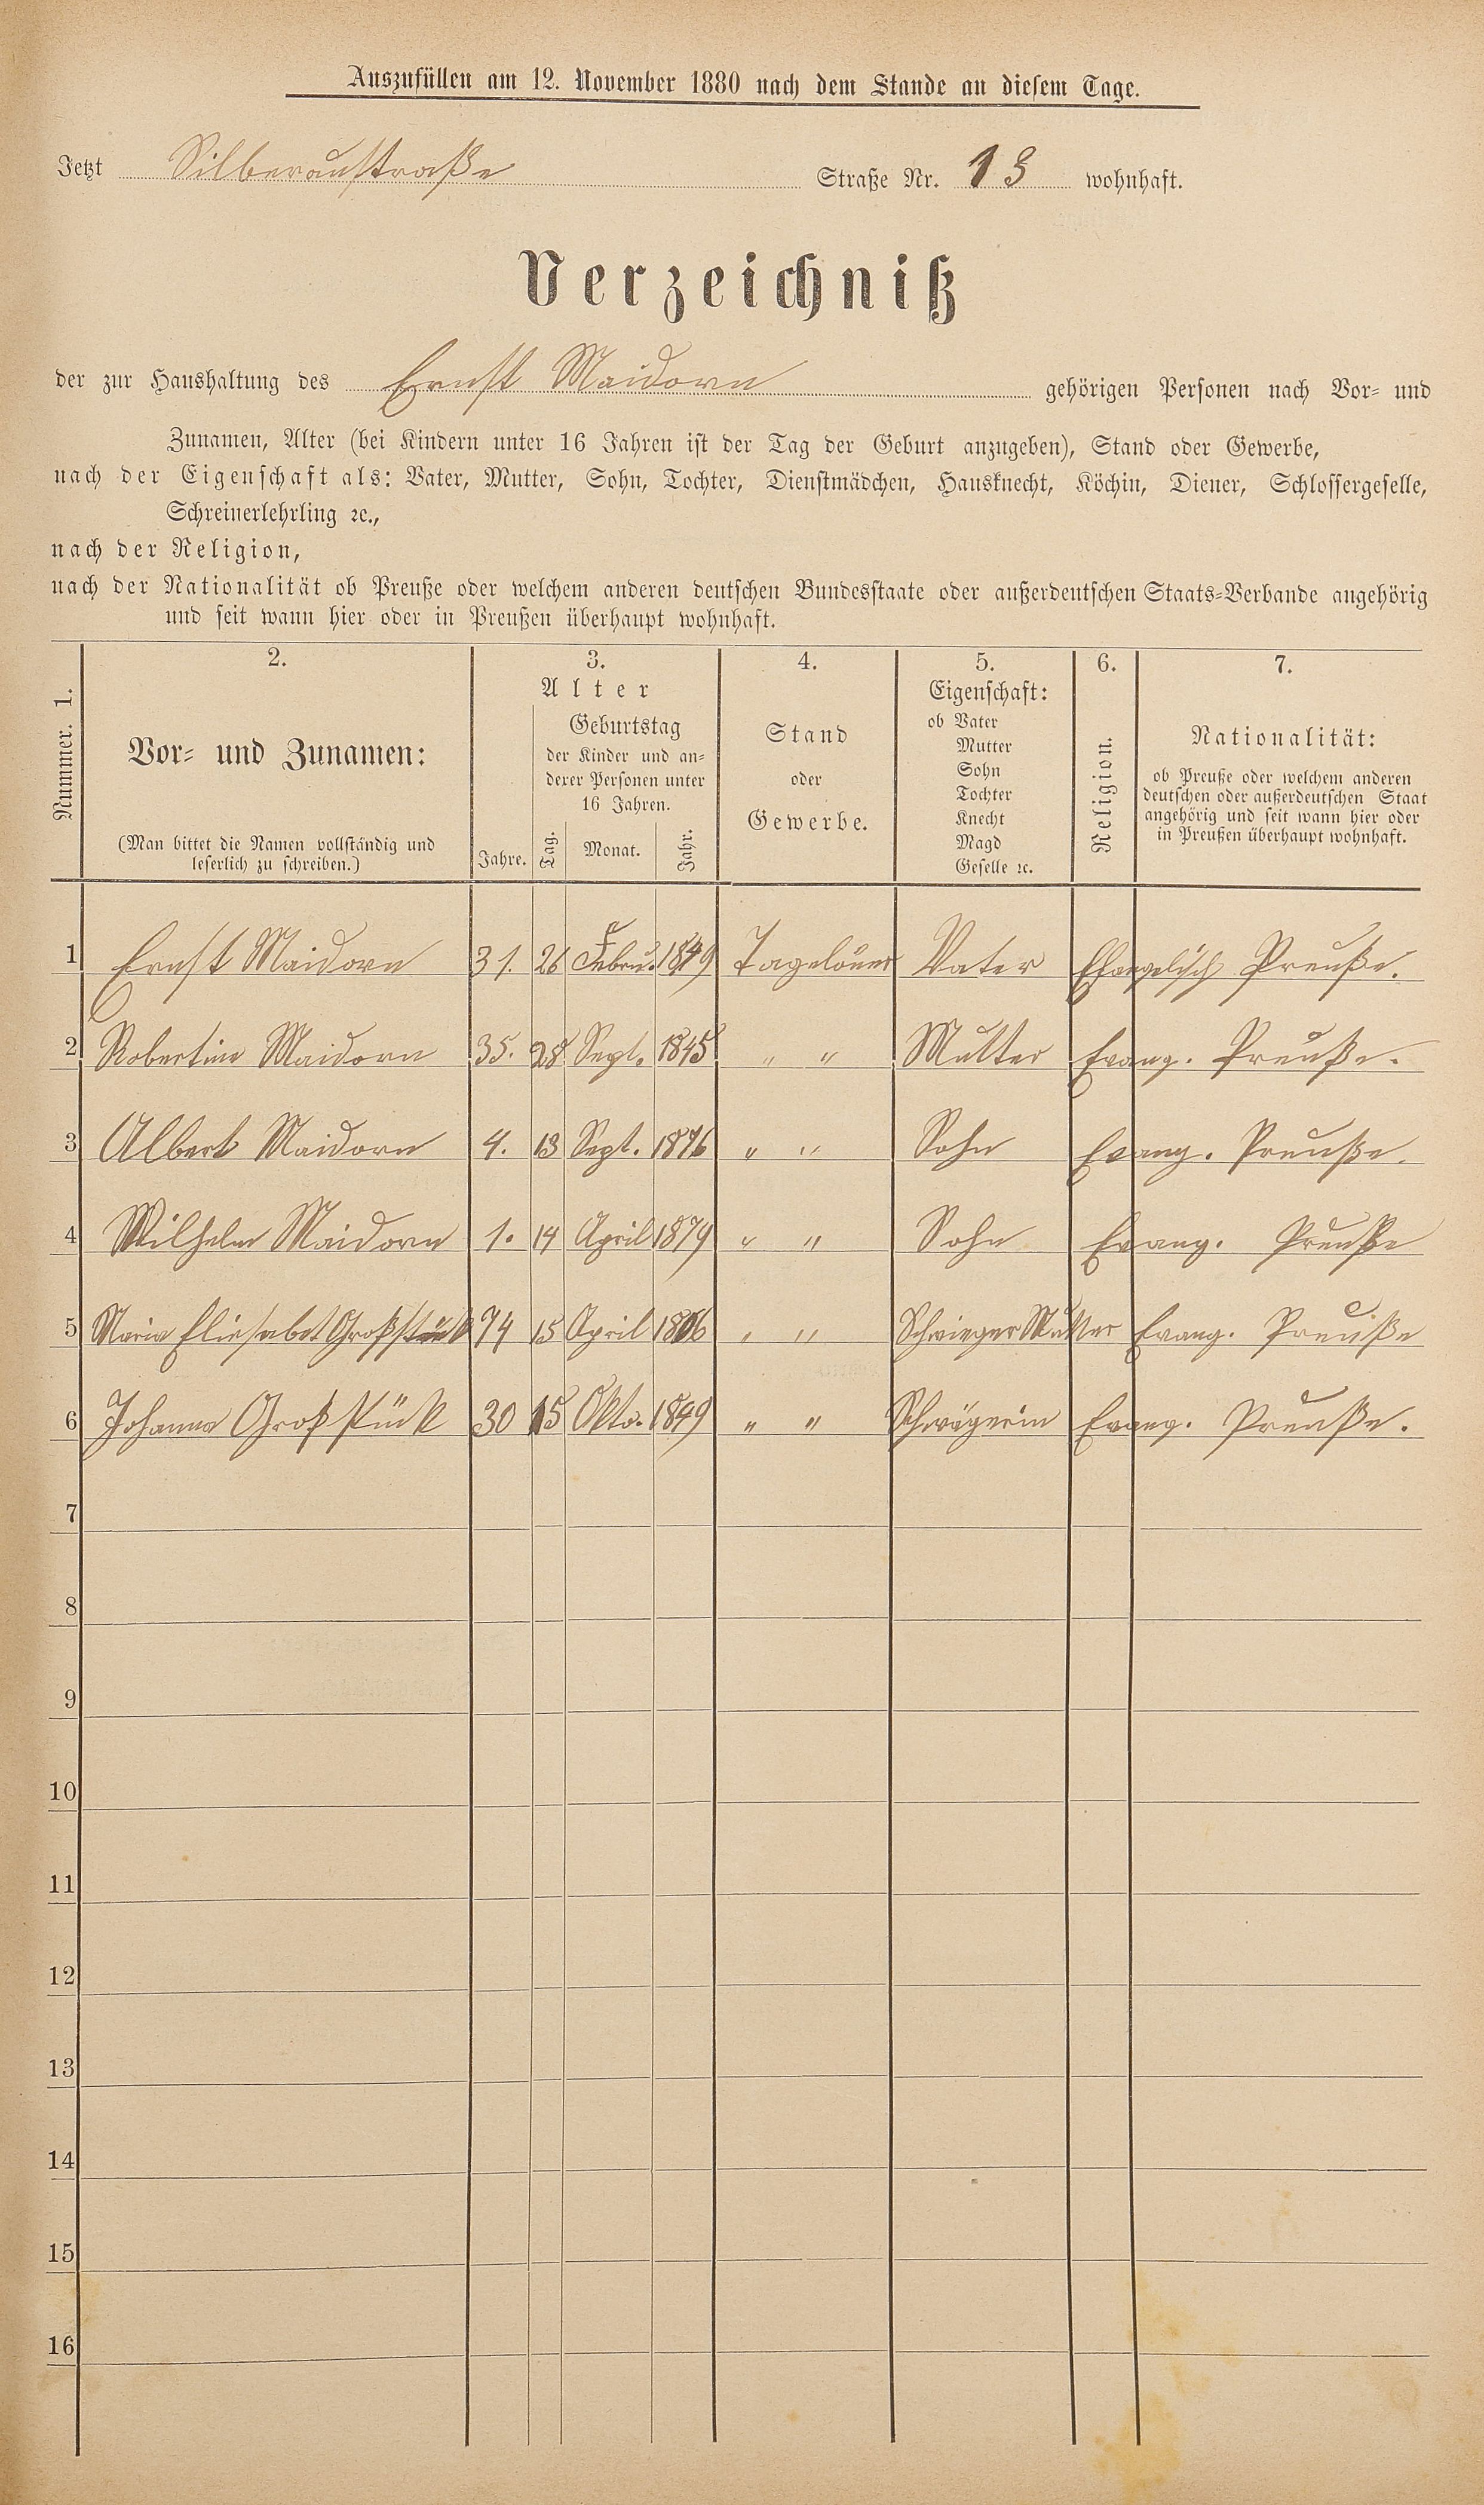 Auszufüllen am 12. November 1880 nach dem Stande an diesem Tage.
Jetzt Silberaustraße Straße Nr. 13 wohnhaft.
Verzeichniß
der zur Haushaltung des Ernst Maidorn gehörigen Personen nach Vor- und
Zunamen, Alter (bei Kindern unter 16 Jahren ist der Tag der Geburt anzugeben), Stand oder Gewerbe,
nach der Eigenschaft als: Vater, Mutter, Sohn, Tochter, Dienstmädchen, Hausknecht, Köchin, Diener, Schlossergeselle,
Schreinerlehrling ꝛc.,
nach der Religion,
nach der Nationalität ob Preuße oder welchem anderen deutschen Bundesstaate oder außerdeutschen Staats-Verbande angehörig
und seit wann hier oder in Preußen überhaupt wohnhaft.
Nummer. 1.
2.
Vor- und Zunamen:
(Man bittet die Namen vollständig und
leserlich zu schreiben.)
3.
Alter
Jahre.
Geburtstag
der Kinder und an-
derer Personen unter
16 Jahren.
Tag. Monat. Jahr.
4.
Stand
oder
Gewerbe.
5.
Eigenschaft:
ob Vater
Mutter
Sohn
Tochter
Knecht
Magd
Geselle ꝛc.
6.
Religion.
7.
Nationalität:
ob Preuße oder welchem anderen
deutschen oder außerdeutschen Staat
angehörig und seit wann hier oder
in Preußen überhaupt wohnhaft.
1 Ernst Maidorn 31. 26 Febru. 1849 Tagelöner Vater Efangelisch Preuße.
2 Robertine Maidorn 35. 28 Sept. 1845 " " Mutter Evang. Preuße.
3 Albert Maidorn 4. 13 Sept. 1876 " " Sohn Evang. Preuße.
4 Wilhelm Maidorn 1. 14 April 1879 " " Sohn Evang. Preuße
5 Maria Eliesabet Großstück 74 15 April 1806 " " Schwieger Mutter Evang. Preuße
6 Johanna Großstück 30 15 Okto. 1849 " " Schwägerin Evang. Preuße.
7
8
9
10
11
12
13
14
15
16